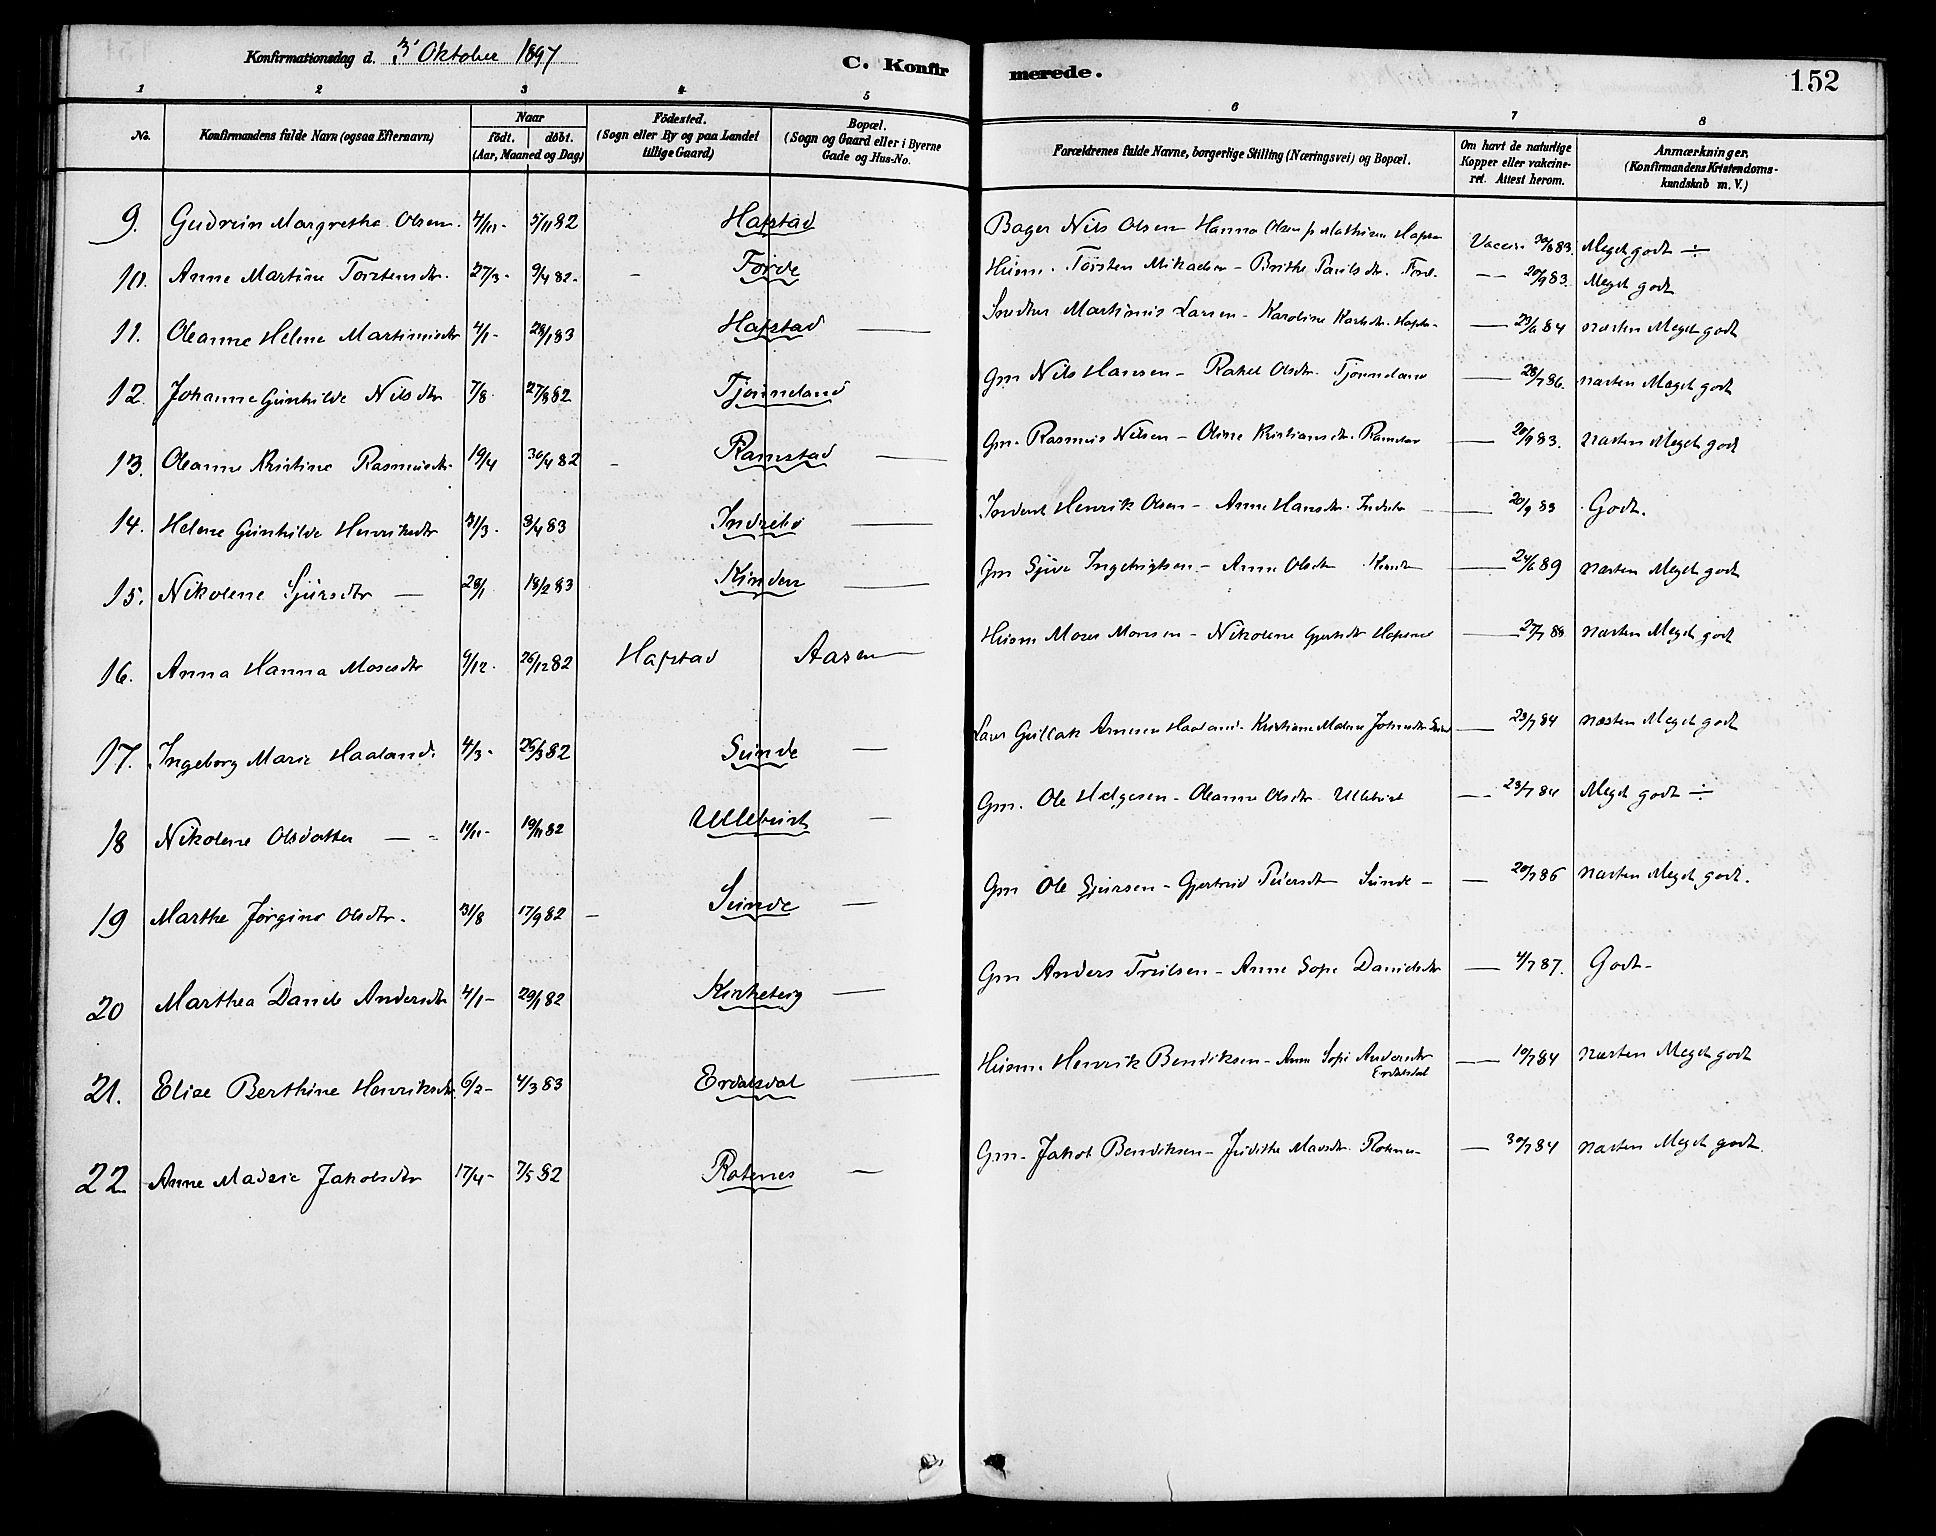 Konfirmationsdag d. 3' Oktober 1897
C. Konfirmerede.
152
1 2 3 4 5 6 7 8
No.
Konfirmandens fulde Navn (ogsaa Efternavn)
Naar
födt. döbt.
(Aar, Maaned og Dag)
Födested.
(Sogn eller By og paa Landet
tillige Gaard)
Bopæl.
(Sogn og Gaard eller i Byerne
Gade og Hus-No.
Forældrenes fulde Navne, borgerlige Stilling (Næringsvei) og Bopæl.
Om havt de naturlige
Kopper eller vakcine-
ret. Attest herom.
Anmærkninger.
(Konfirmandens Kristendoms-
kundskab m. V.)
9. Gudrun Margrethe Olsen 4/11- 5/11 82 Hafstad Bager Nils Olsen Hanna Olsen f. Mathisen Vaccin. 30/8 83. Meget godt ÷
10. Anne Martine Torstensdtr. 27/3- 9/4 82 - Førde Husm. Torsten Mikaelsen - Brithe Paulsdtr. Førd. — 20/9 83. Meget godt
11. Oleanne Helene Martinusdtr 4/1- 28/1 83 Hafstad — Martinus Larsen - Karoline — 23/6 84 næsten Meget godt
12. Johanne Gunhilde Nilsdtr 7/8 27/8 82 Tjønneland Gm Nils Hansen - Rakel Olsdtr. Tjønneland — 28/7 86. næsten Meget godt
13. Oleanne Kristine Rasmusdtr. 19/4 30/4 82 - Ramstad — Gm. Rasmus Nilsen - Oline Kristiansdtr. Ramstad — 20/9 83. næsten Meget godt
14. Helene Gunhilde Henriksdtr 31/3- 8/4 83 Indrebø — Henrik Olsen - Anne Hansdtr. Indrebø — 20/9 83 Godt.
15. Nikolene Sjursdtr — 28/1 18/2 83 Kinden — Gm Sjur Ingebrigtsen - Anne Olsdtr — 24/6 89 næsten Meget godt
16. Anna Hanna Mosesdtr 9/12- 26/12 82 Hafstad Aasen — Husm Moses Monsen - Nikolene — 27/7 83 næsten Meget godt
17. Ingeborg Marie Haaland. 4/3- 26/3 82 Sunde — Gullak Arnesen Haaland - Kristiane Malene Johnsdtr — 23/7 84 næsten Meget godt
18 Nikolene Olsdatter — - 11/11- 19/11 82 Ullebust - Gm. Ole Helgesen - Oleanne Olsdtr Ullebust — 23/7 84 Meget godt ÷
19 Marthe Jørgine Olsdtr. 31/8 17/9 82 - Sunde — Gm Ole Sjursen - Gjertrud Peersdtr Sunde - — 20/7 86 næsten Meget godt.
20 Marthea Dande Andersdtr 4/1- 29/1 82 Kirkeberg — Gm Anders Truilsen - Anne Sofie Danielsdtr — 4/7 87. Godt-
21. Elise Berthine Henriksdtr. 6/2- 4/3 83 Erdalsdal — Husm. Henrik Bendiksen - Anne Sofie Andersdtr Erdalsdal — 10/7 84 næsten Meget godt
22 Anne Madsie Jakobsdtr 17/4- 7/5 82 Rotenes — Gm. Jakob Bendiksen - Judithe Madsdtr. Rotenes — 30/7 84 næsten Meget godt.